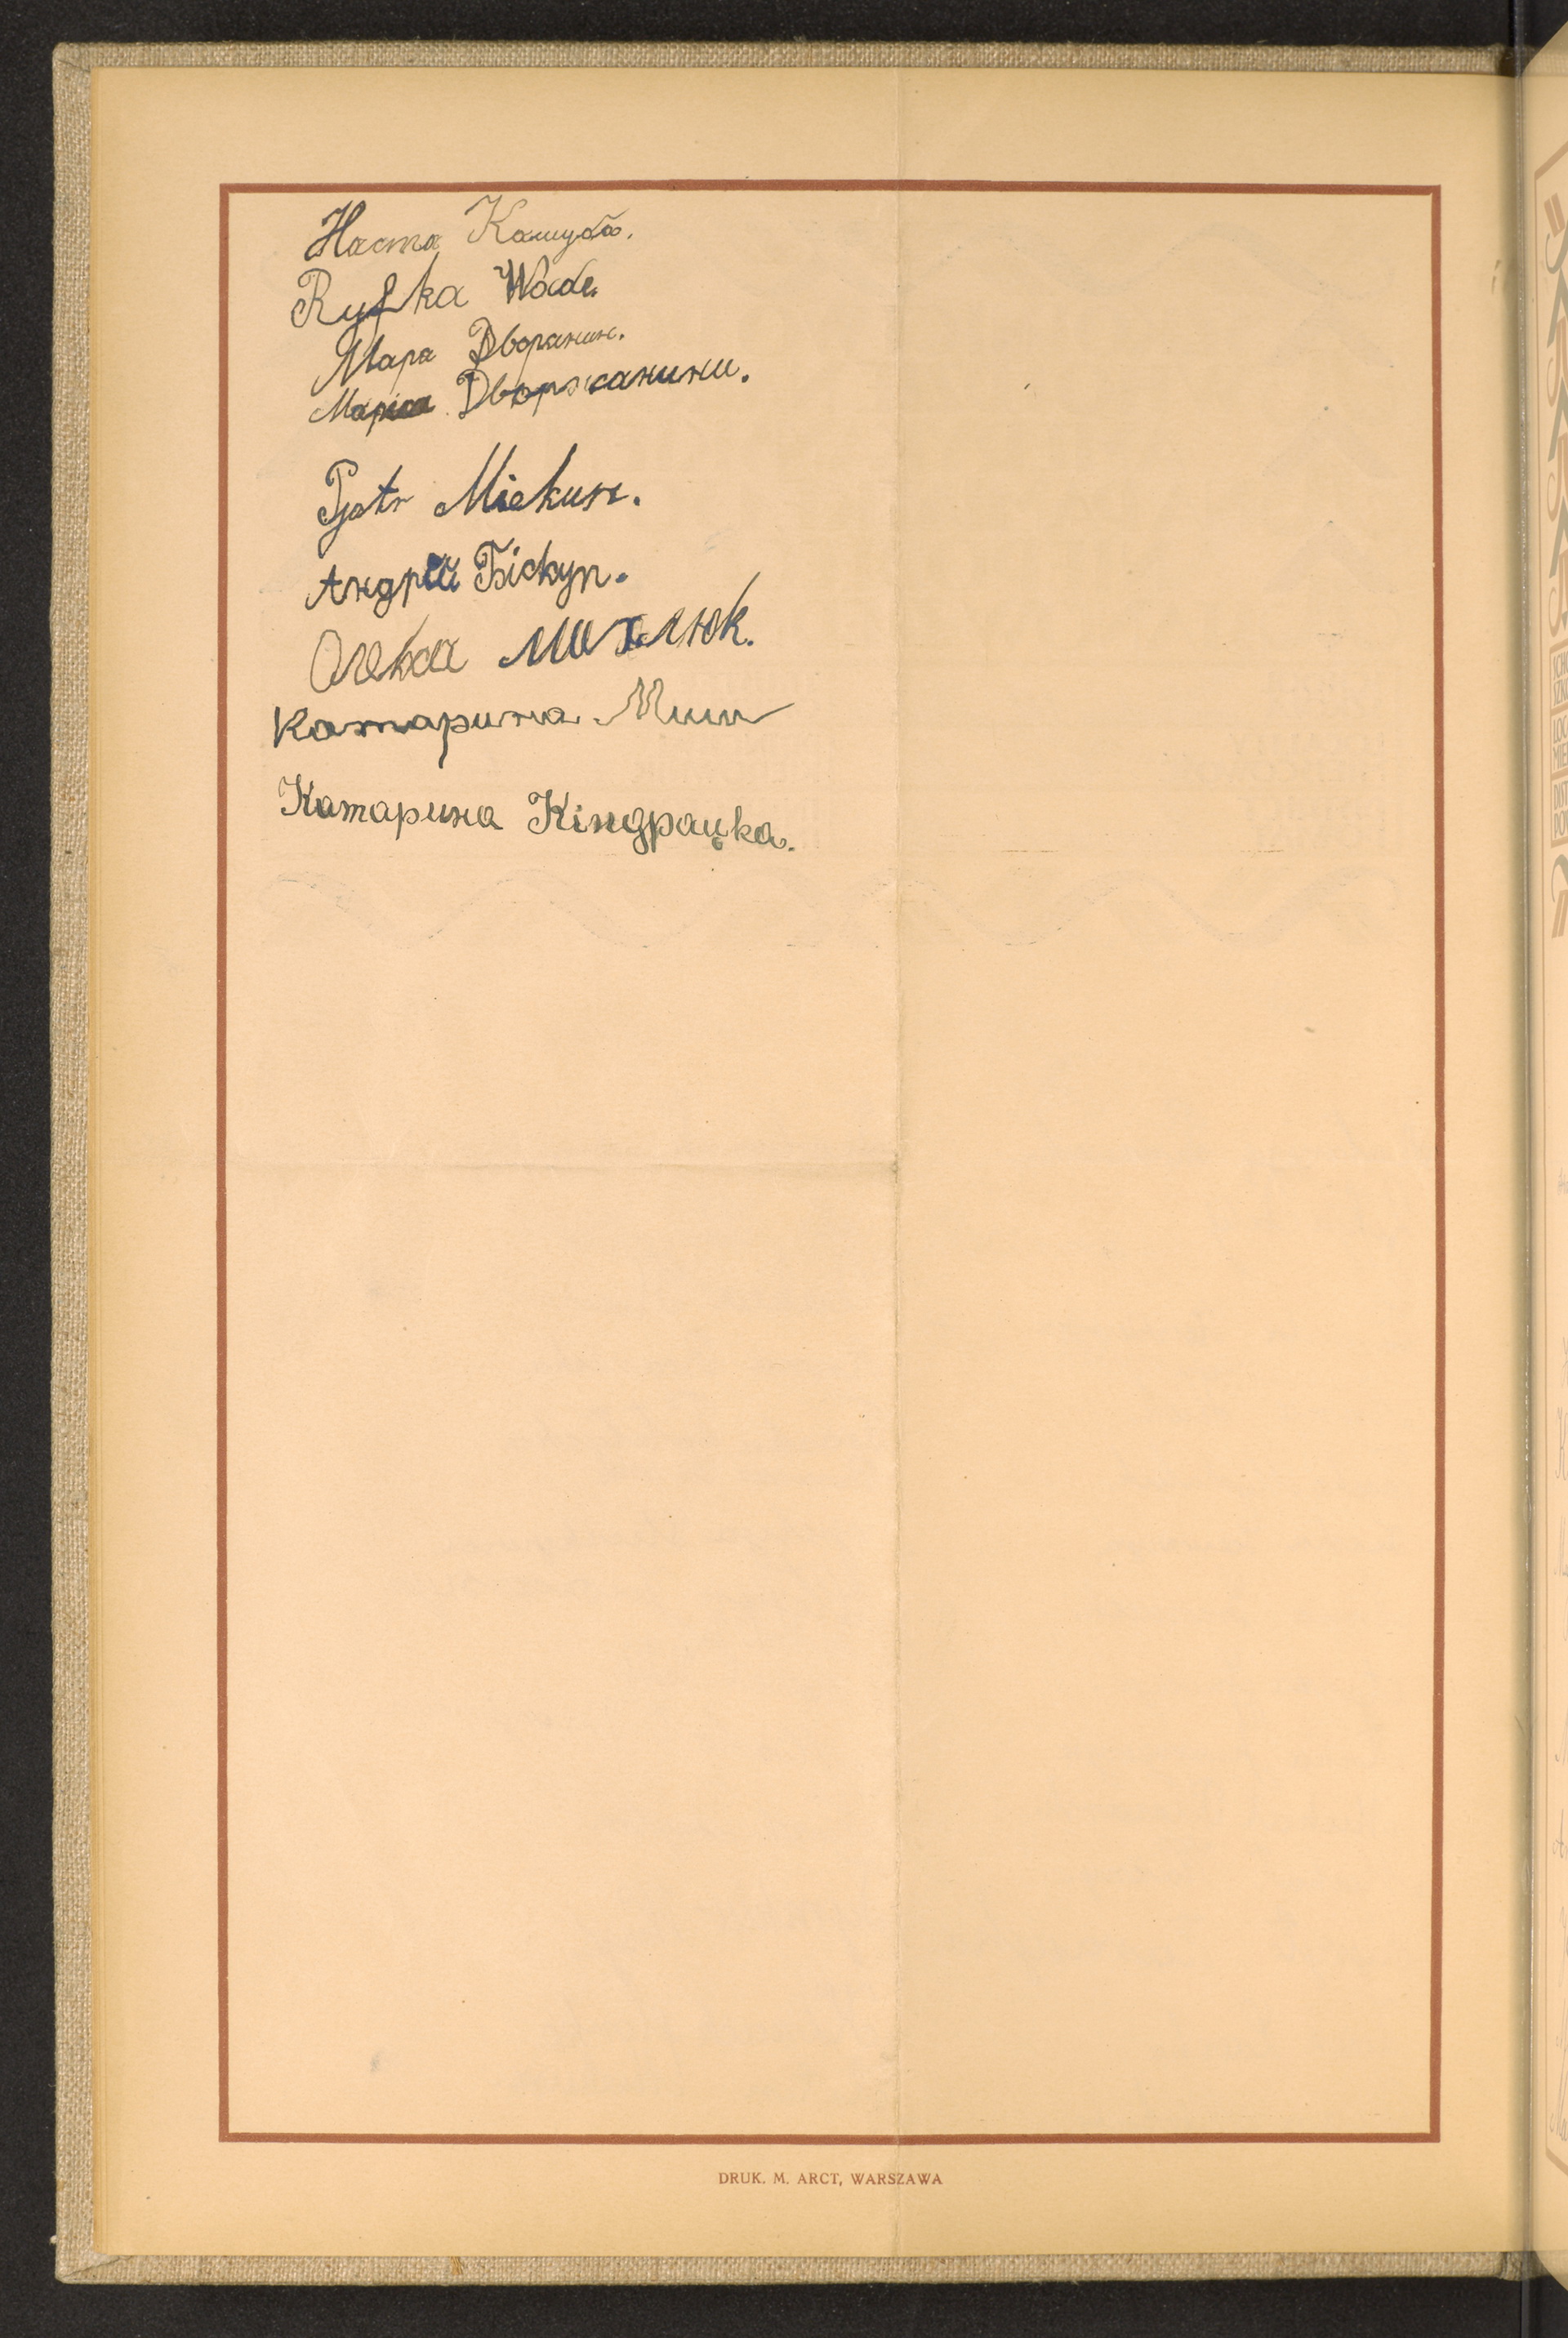 Наста Кашуба.
Ryfka Wade.
Мара Дворанин.
Маріа Дворжанини.
Pjotr Miekuse.
Андрій Біскуп.
Олекса
Катарина Миш
Катарина Кіндрацка.
DRUK. M. ARCT, WARSZAWA